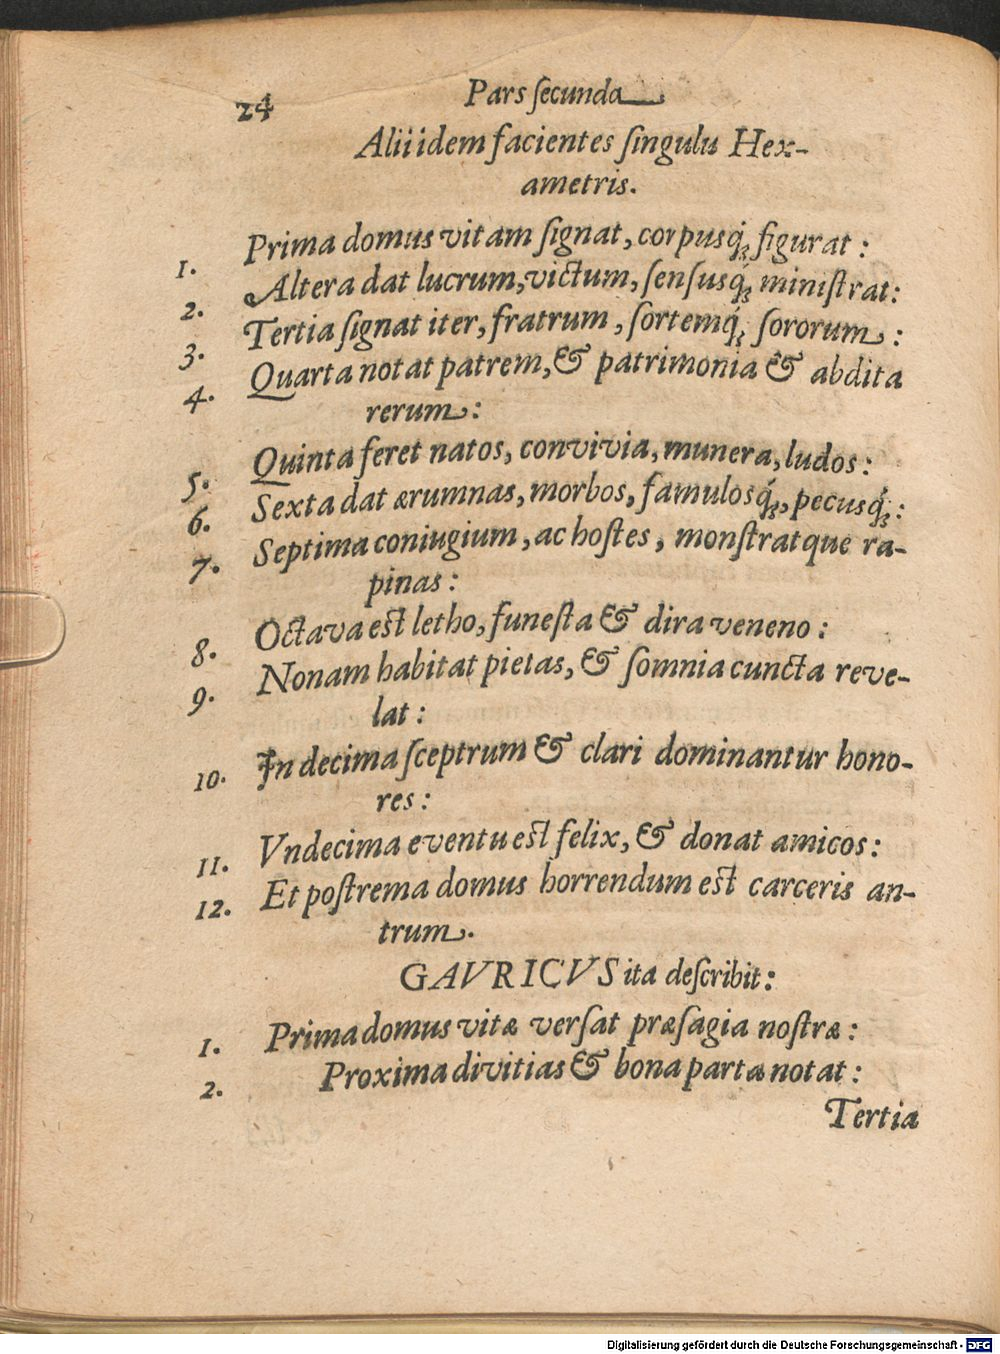 24 Pars ſecunda
Alii idem facientes ſingulu Hex-
ametris.
1. Prima domus vitam ſignat, corpusq́; figurat:
2. Altera dat lucrum, victum, ſenſusq́; miniſtrat:
3. Tertia ſignat iter, fratrum, ſortemq́; ſororum:
4. Quarta notat patrem, & patrimonia & abdita
rerum:
5. Quinta feret natos, convivia, munera, ludos:
6. Sexta dat ærumnas, morbos, famulosq́;, pecusq́;:
7. Septima coniugium, ac hoſtes, monſtratque ra-
pinas:
8. Octava eſt letho, funeſta & dira veneno:
9. Nonam habitat pietas, & ſomnia cuncta reve-
lat:
10. In decima ſceptrum & clari dominantur hono-
res:
11. Vndecima eventu eſt felix, & donat amicos:
12. Et poſtrema domus horrendum eſt carceris an-
trum.
GAVRICVS ita deſcribit:
1. Prima domus vitæ verſat præſagia noſtræ:
2. Proxima divitias & bona parta notat:
Tertia
Digitalisierung gefördert durch die Deutsche Forschungsgemeinschaft - DFG